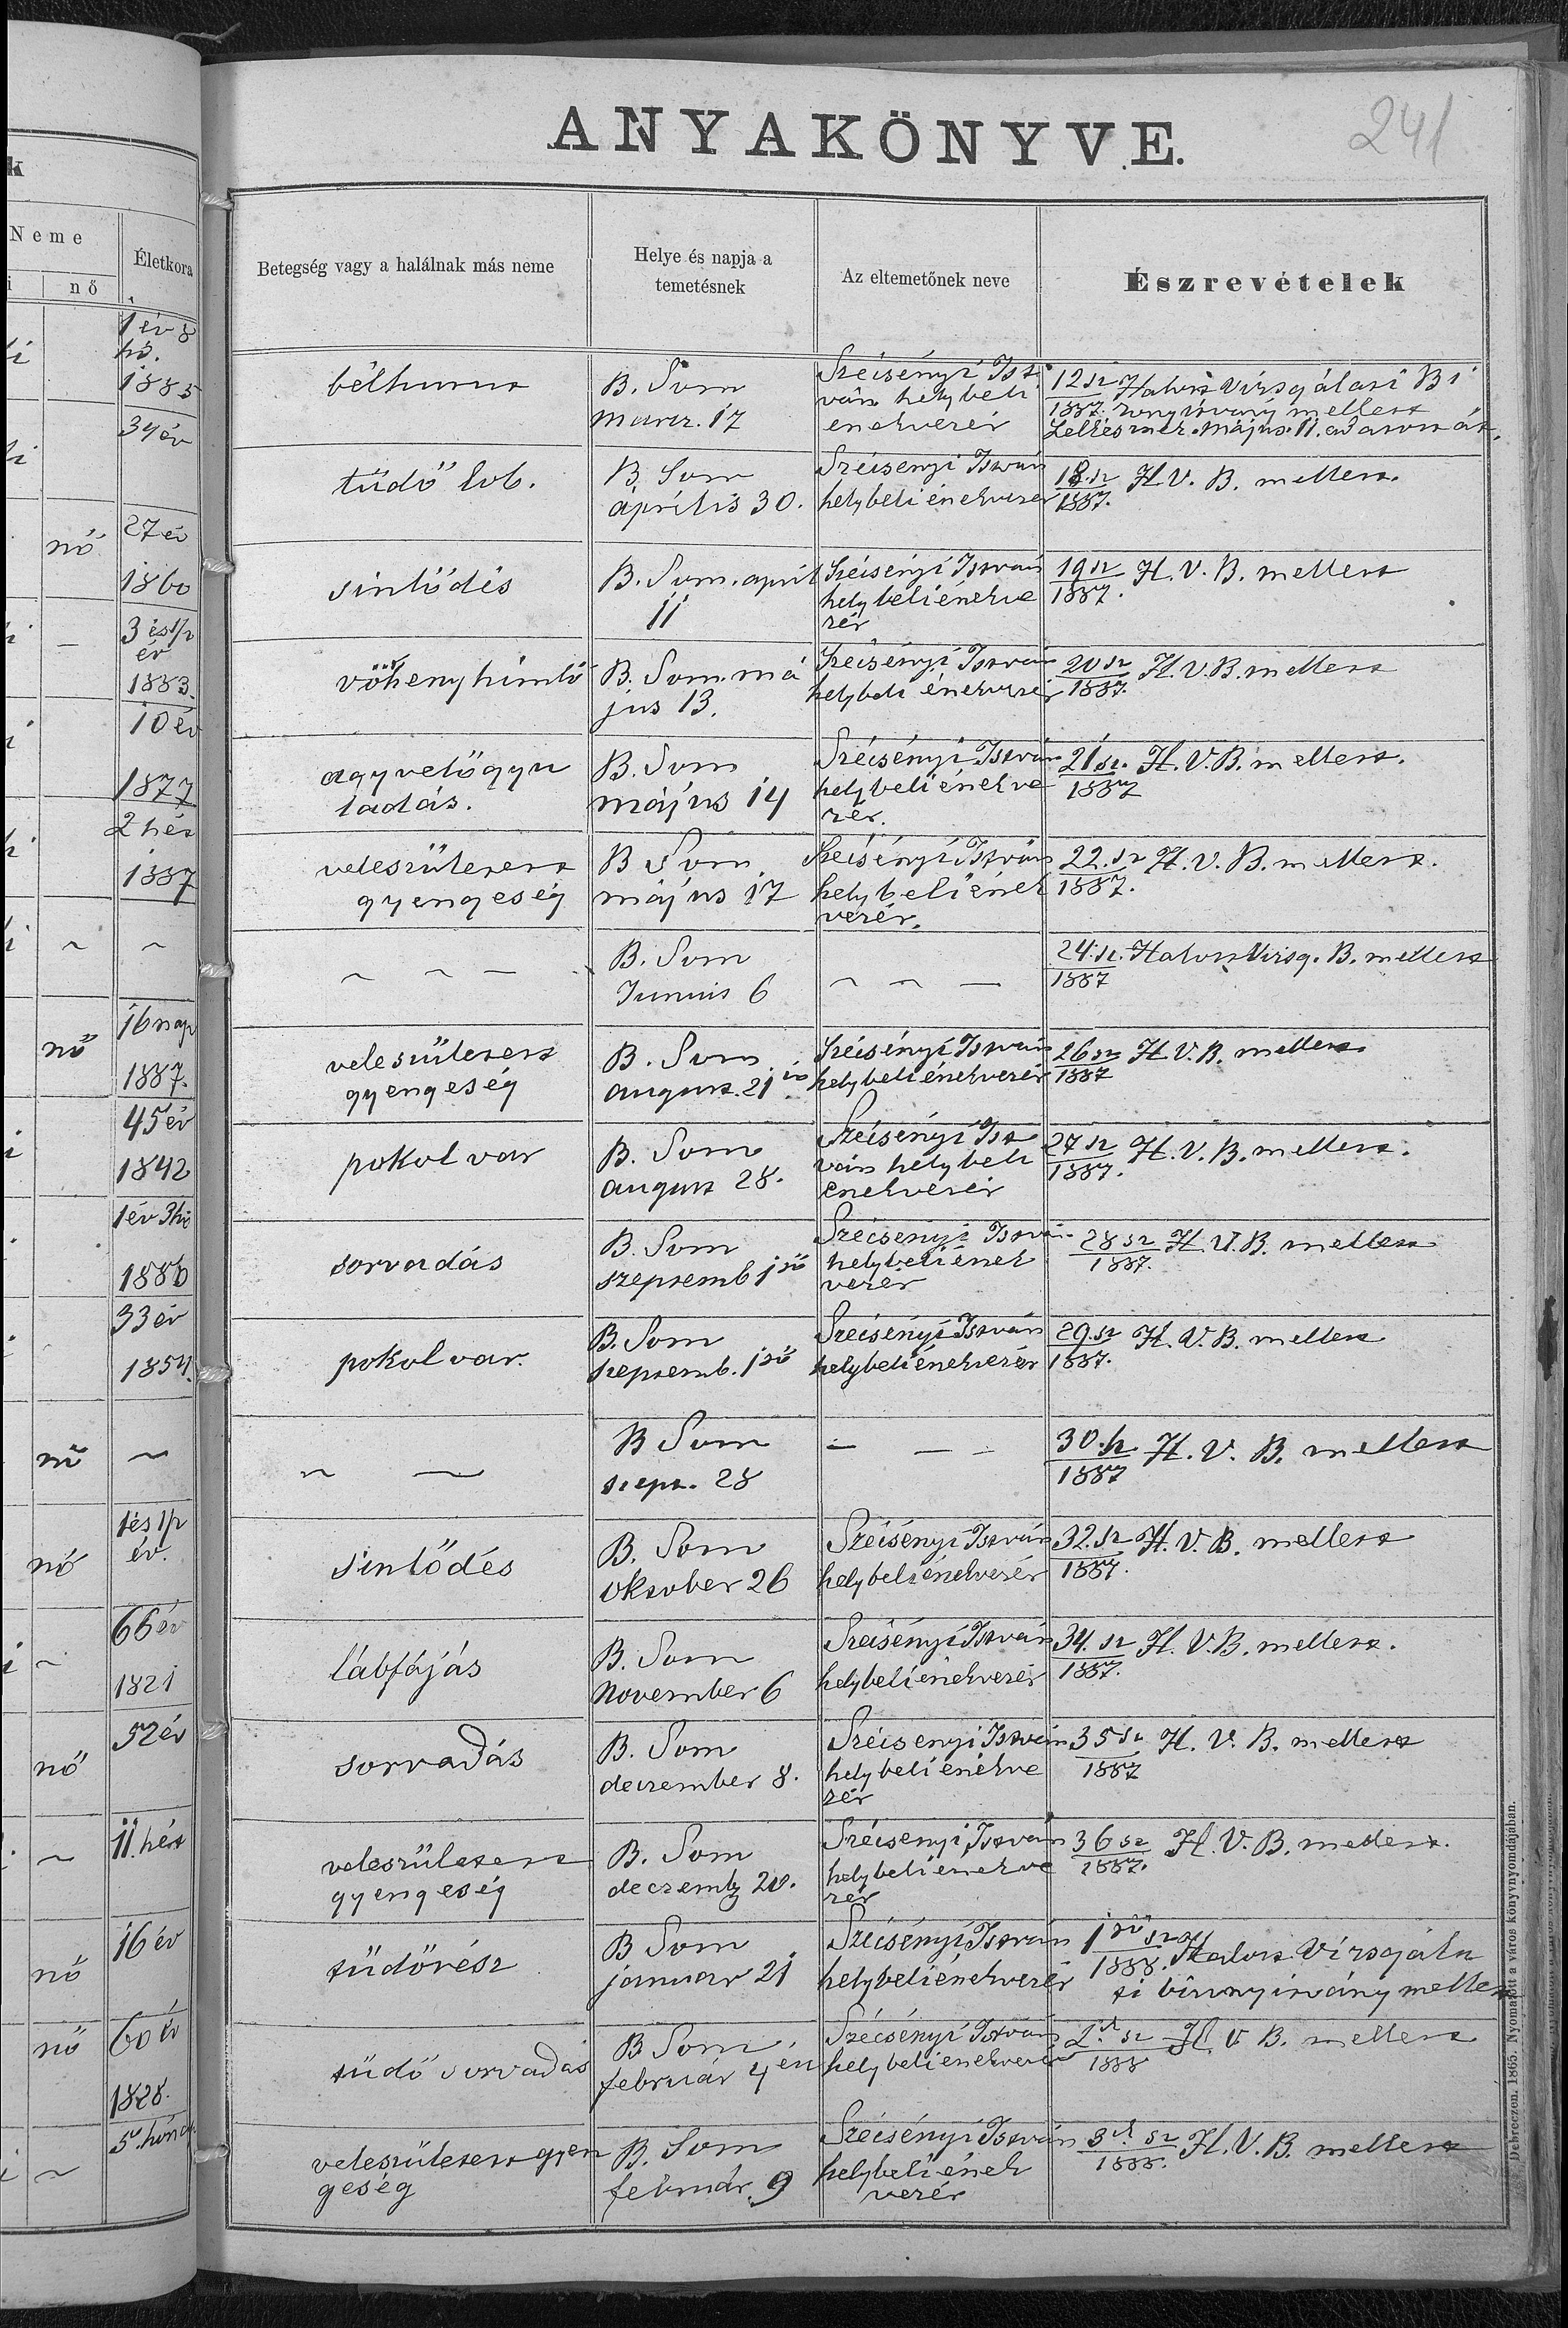 ANYAKÖNYVE.
241
k
Neme
Életkora
i
nő
Betegség vagy a halálnak más neme
Helye és napja a
temetésnek
Az eltemetőnek neve
Észrevételek
1 év 8
hó.
1885
bélhurut
B. Som
marcz. 17
Szécsényi Ist
ván helybeli
énekvezér
12 sz Halott vizsgálati Bi
1887. zonyitvány mellett
Lelkész
Május 11.
34 év
tüdő lob.
B. Som
április 30.
Szécsényi István
helybeli énekvezér
18. sz H. V. B. mellett.
1887.
nő
27 év
1860
sinlődés
B. Som. april
11
Szécsényi István
helybeli énekve
zér
19 sz H. V. B. mellett
1887.
3 és 1/2
év
1883.
vöheny himlő
B. Som. má
jus 13.
Szécsényi István
helybeli énekvezér
20 sz H. V. B. mellett
1887.
10 év
1877
agyvelőgyu
ladás.
B. Som
május 14
Szécsényi István
helybeli énekve
zér.
21 sz. H. V. B. mellett.
1887
2 hét
1887
veleszületett
gyengeség
B Som
május 17
Szécsényi István
helybeli ének
vezér.
22. sz H. V. B. mellett.
1887.
~ ~
~ ~ —
B. Som
Junius 6
~ ~ —
24. sz. Halott Vizsg. B. mellett
1887
nő
16 nap
1887.
veleszületett
gyengeség
B. Som
august. 21 én
Szécsényi István
helybeli énekvezér
26 sz H. V. B. mellett
1887
45 év
1842
pokol var
B. Som
august 28.
Szécsényi Ist
ván helybeli
énekvezér
27 sz H. V. B. mellett.
1887.
1 év 3 hó
1886
sorvadás
B. Som
szeptemb 1ső
Szécsényi István
helybeli ének
vezér
28 sz H. V. B. mellett
1887.
33 év
1854.
pokol var.
B. Som
szeptemb. 1ső
Szécsényi István
helybeli énekvezér
29. sz H. V. B. mellett
1887.
nő
~
~ —
B Som
szept. 28
— — —
30. sz H. V. B. mellett
1887
nő
1 és 1/2
év.
sinlődés
B. Som
oktober 26
Szécsényi István
helybeli énekvezér
32. sz H. V. B. mellett
1887.
~
66 év
1821
lábfájás
B. Som
november 6
Szécsényi István
helybeli énekvezér
34. sz H. V. B. mellett.
1887.
nő
52 év
sorvadás
B. Som
deczember 8.
Szécsenyi István
helybeli énekve
zér
35 sz H. V. B. mellett
1887
~
11. hét
veleszületett
gyengeség
B. Som
deczemb 20.
Szécsenyi István
helybeli énekve
zér
36 sz H. V. B. mellett.
1887.
nő
16 év
tüdővész
B Som
januar 21
Szécsényi István
helybeli énekvezér
1ső sz Halott Vizsgála
1888.
ti bizonyitvány mellett
nő
60 év
1828.
tüdő sorvadás
B Som
február 4 én
Szécsényi István
helybeli énekvezér
2.ik sz H. V. B. mellett
1888
~
5. hónap
veleszületett gyen
geség
B. Som
február. 9
Szécsényi István
helybeli ének
vezér
3ik sz H. V. B. mellett
1888.
Debreczen. 1865. Nyomatott a város könyvnyomdájában.